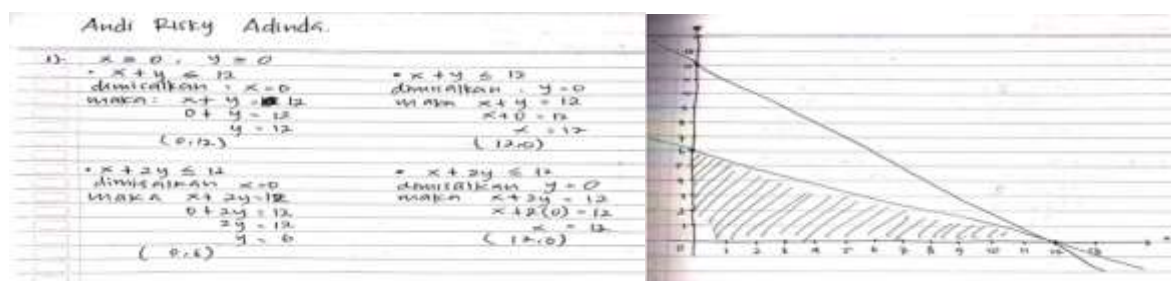 Andi Risky Adinda.
1). x = 0, y = 0
• x + y ≤ 12
dimisalkan : x = 0
maka : x + y = 12
0 + y = 12
y = 12
(0,12)
• x + y ≤ 12
dimisalkan : y = 0
maka x + y = 12
x + 0 = 12
x = 12
(12,0)
• x + 2y ≤ 12
dimisalkan x = 0
maka x + 2y = 12
0 + 2y = 12
2y = 12
y = 6
(0,6)
• x + 2y ≤ 12
dimisalkan y = 0
maka x + 2y = 12
x + 2(0) = 12
x = 12
(12,0)
0 1 2 3 4 5 6 7 8 9 10 11 12 13